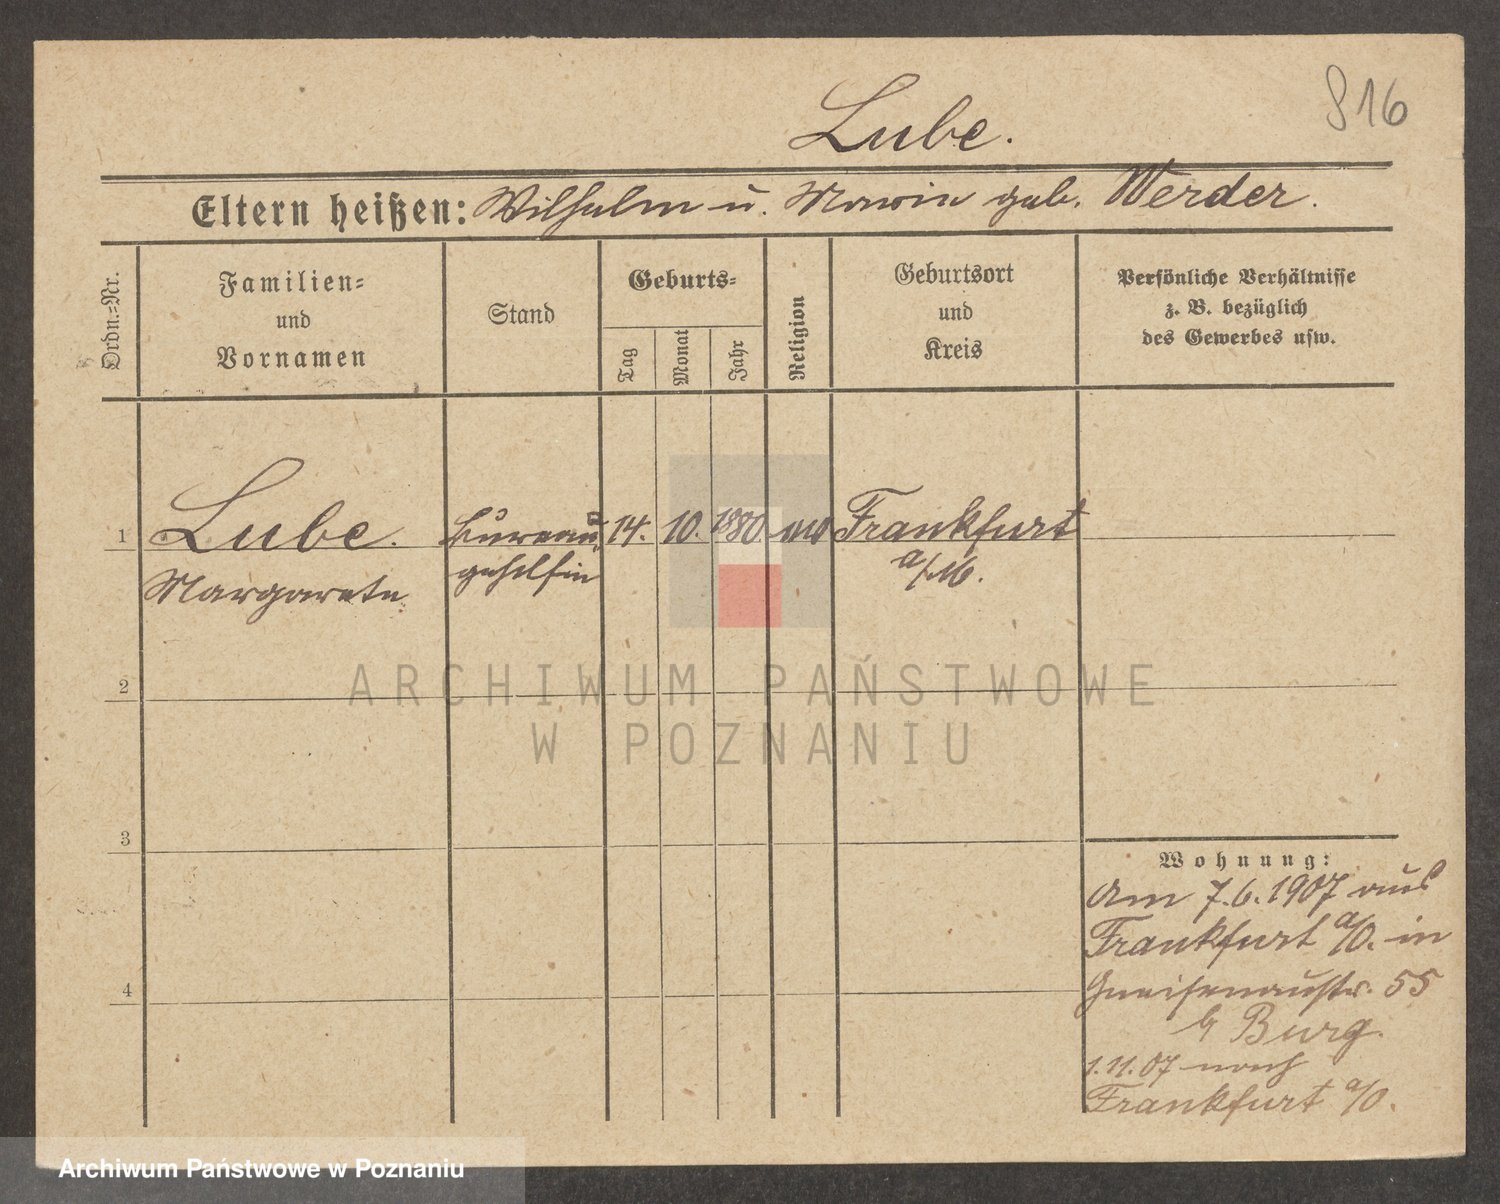 816
Lube.
Eltern heißen: Wilhelm u. Marie geb. Werder.
Ordn.=Nr.
Familien=
und
Vornamen
Stand
Geburts=
Tag
Monat
Jahr
Religion
Geburtsort
und
Kreis
Persönliche Verhältnisse
z. B. bezüglich
des Gewerbes usw.
1 Lube. Bureau 14. 10. 1880 Frankfurt
Margarete gehilfin a/
2
3
4
Wohnung:
Am 7.6.1907 aus
Frankfurt a/O. in
Gneisenaustr. 55
b/ Burg.
1.11.07 nach
Frankfurt a/O.
ARCHIWUM PAŃSTWOWE
W POZNANIU
Archiwum Państwowe w Poznaniu